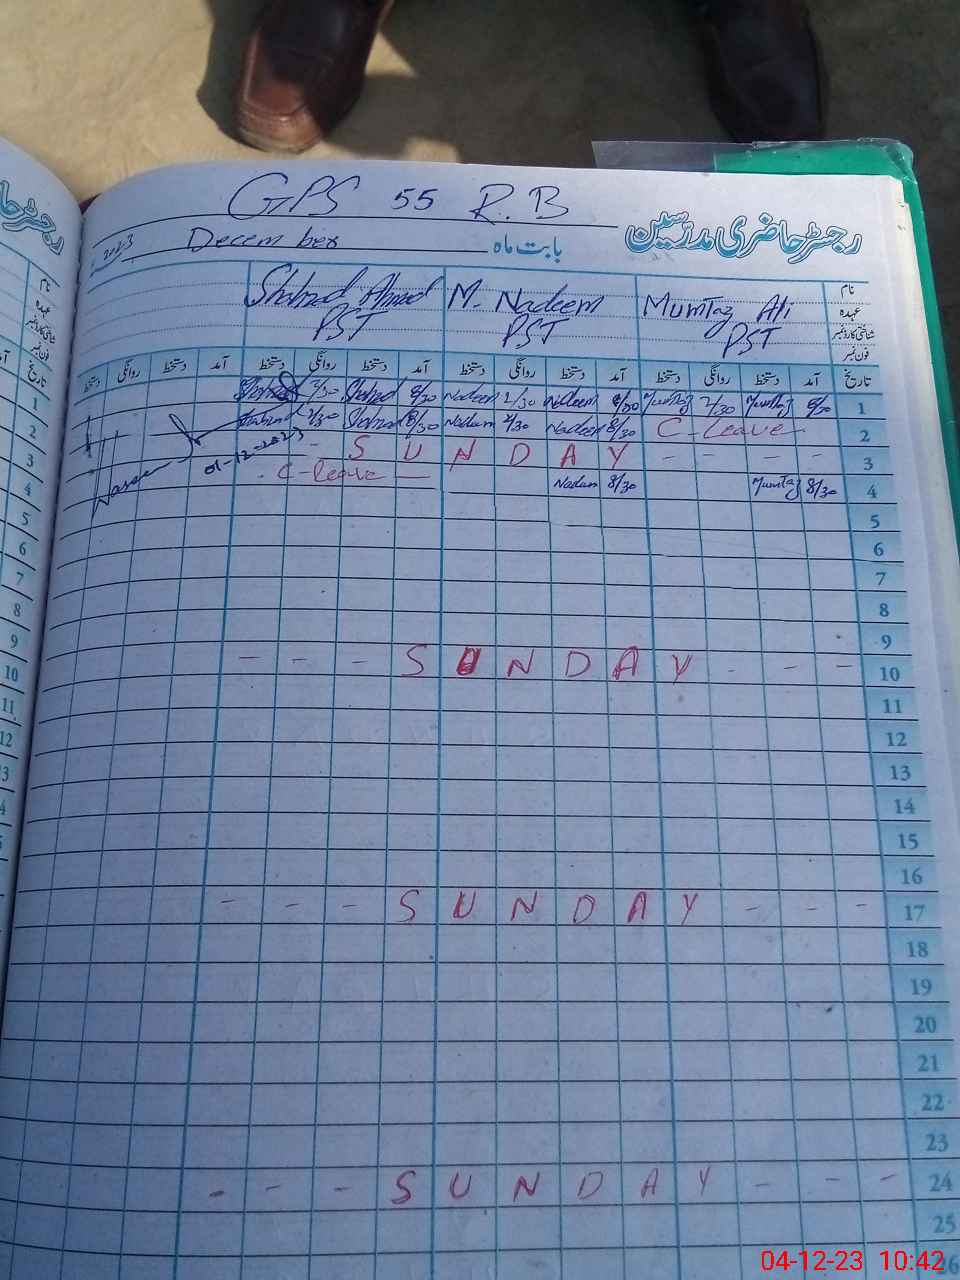 GPS 55 R.B
رجسٹر حاضری مدرسین
بابت ماہ December 2023
نام
عہدہ
شناختی کارڈ نمبر
فون نمبر
Mumtaz Ali PST
M. Nadeem PST
Shahzad Ahmad PST
تاریخ آمد دستخط روانگی دستخط آمد دستخط روانگی دستخط آمد دستخط روانگی دستخط آمد دستخط روانگی دستخط
1 8/30 Mumtaz 2/30 Mumtaz 8/30 Nadeem 2/30 Nadeem 8/30 Shahzad 2/30 Shahzad
2 C-Leave 8/30 Nadeem 2/30 Nadeem 8/30 Shahzad 2/30 Shahzad
3 - - - - S U N D A Y -
01-12-2023
4 8/30 Mumtaz 8/30 Nadeem C-leave —
5
6
7
8
9
10 - - - S U N D A Y - - -
11
12
13
14
15
16
17 - - - S U N D A Y - - -
18
19
20
21
22
23
24 - - - S U N D A Y - - -
25
26
رجسٹر حا
نام
عہدہ
شناختی کارڈ نمبر
فون نمبر
تاریخ
1
2
3
4
5
6
7
8
9
10
11
12
04-12-23 10:42